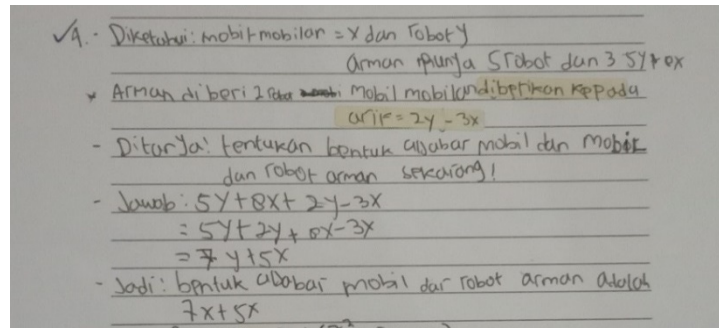 √4. - Diketahui: mobil-mobilan = x dan robot y
arman punya 5 robot dan 3 5y + 8x
* Arman di beri 2 mobil mobilan diberikan kepada
arif = 2y - 3x
- Ditanya: tentukan bentuk aljabar mobil dan mobil
dan robot arman sekarang!
- Jawab: 5y + 8x + 2y - 3x
= 5y + 2y + 8x - 3x
= 7y + 5x
- Jadi: bentuk aljabar mobil dar robot arman adalah
7x + 5x